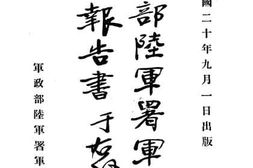 國二十年九月一日出版
部陸軍署軍
報告書 于右
軍政部陸軍署軍